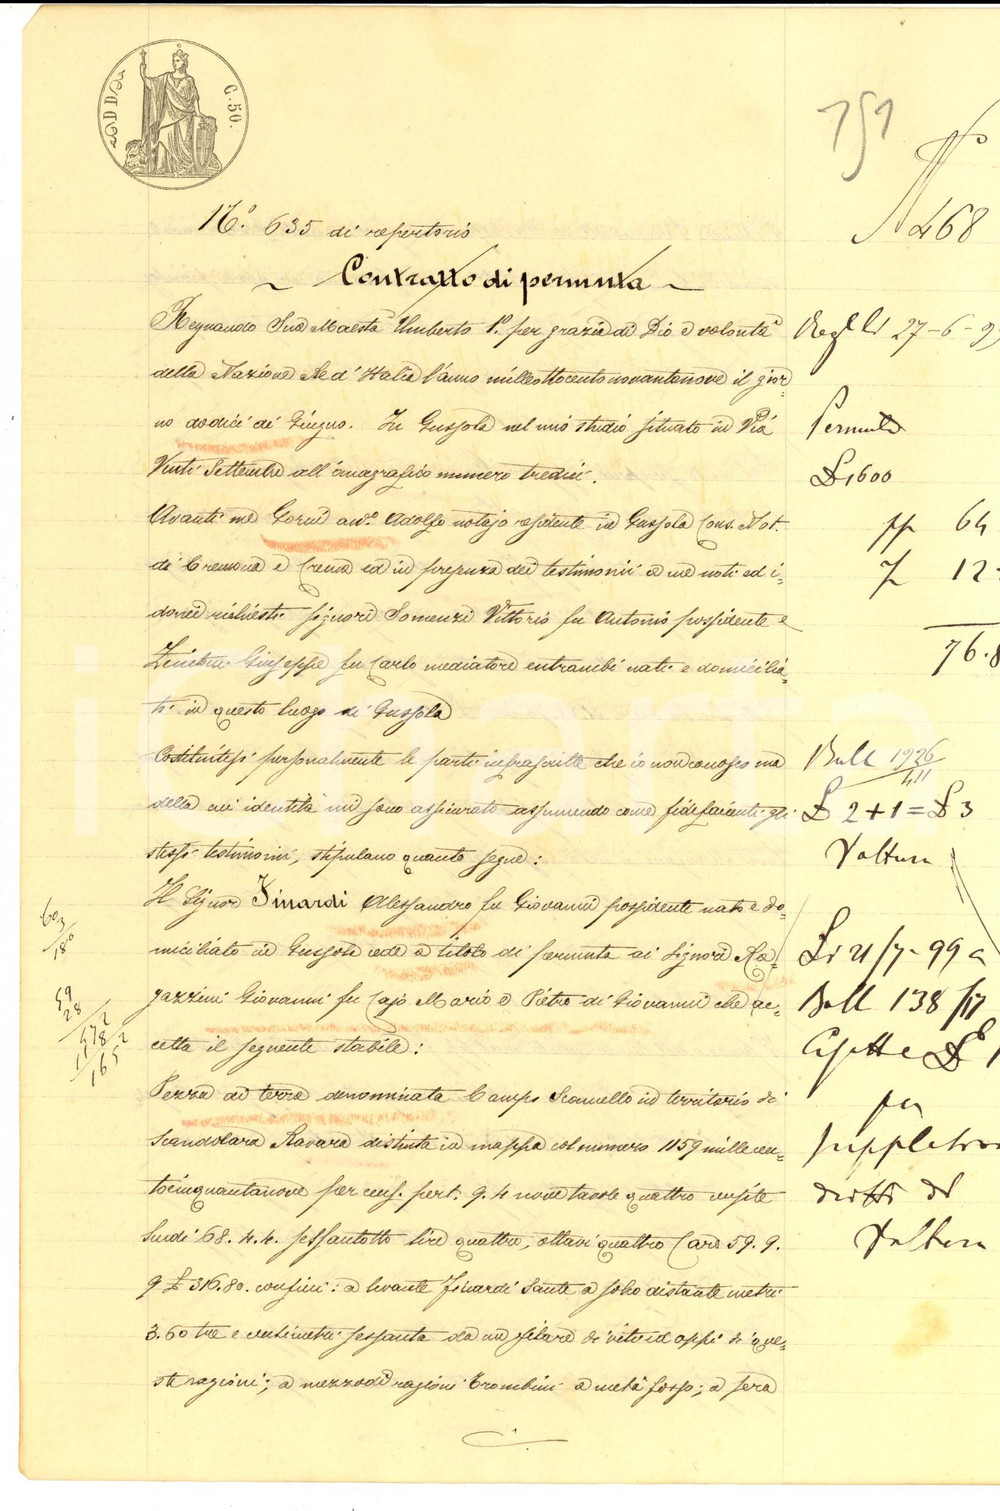 C. 50.
759
N° 468
N.° 635 di repertorio
Contratto di permuta
Regnando Sua Maestà Umberto I° per grazia di Dio e volontà
della Nazione Re d'Italia l'anno milleottocentonovantanove il gior-
no dodici di Giugno. In Gussola nel mio studio situato in Via
Venti Settembre all'anagrafico numero tredici.
Avanti me Gorni avv.° Adolfo notajo residente in Gussola Cons. Not.
di Cremona e Crema ed in presenza dei testimonii a me noti ed i-
donei richiesti signori Somenzi Vittorio fu Antonio possidente e
Giuseppe fu Carlo mediatore entrambi nati e domicilia-
ti in questo luogo di Gussola
Costituitesi personalmente le parti infrascritte che io non conosco ma
della cui identità mi sono assicurato assumendo come fidefacienti gli
stessi testimoni, stipulano quanto segue:
Il Signor Finardi Alessandro fu Giovanni possidente nato e do-
miciliato in Gussola cede a titolo di permuta ai Signori Ra-
gazzini Giovanni fu Cajo Mario e Pietro di Giovanni che ac-
cetta il seguente stabile:
Pezza di terra denominata Campo Scannello in territorio di
Scandolara Ravara distinta in mappa col numero 1159 millecen-
tocinquantanove per cens. pert. 9. 4 nove tavole quattro censite
Scudi 68. 4. 4. sessantotto lire quattro, ottavi quattro Care 59. 9.
9 £ 316.80. confini: a levante Finardi Sante a solco distante metri
3. 60 tre e centimetri sessanta da un filare di viti ed oppi di que-
ste ragioni; a mezzodì ragioni Trombini a metà fosso; a sera
27-6-99
Permuta
£ 1600
pp 64
12
76.8
Boll 1926/411
£ 2 + 1 = £ 3
Voltura
21/7-99 a
Boll 138/17
£ 1
per
suppletivo
diritti di
Voltura
603/180
59
28
472
118
1652